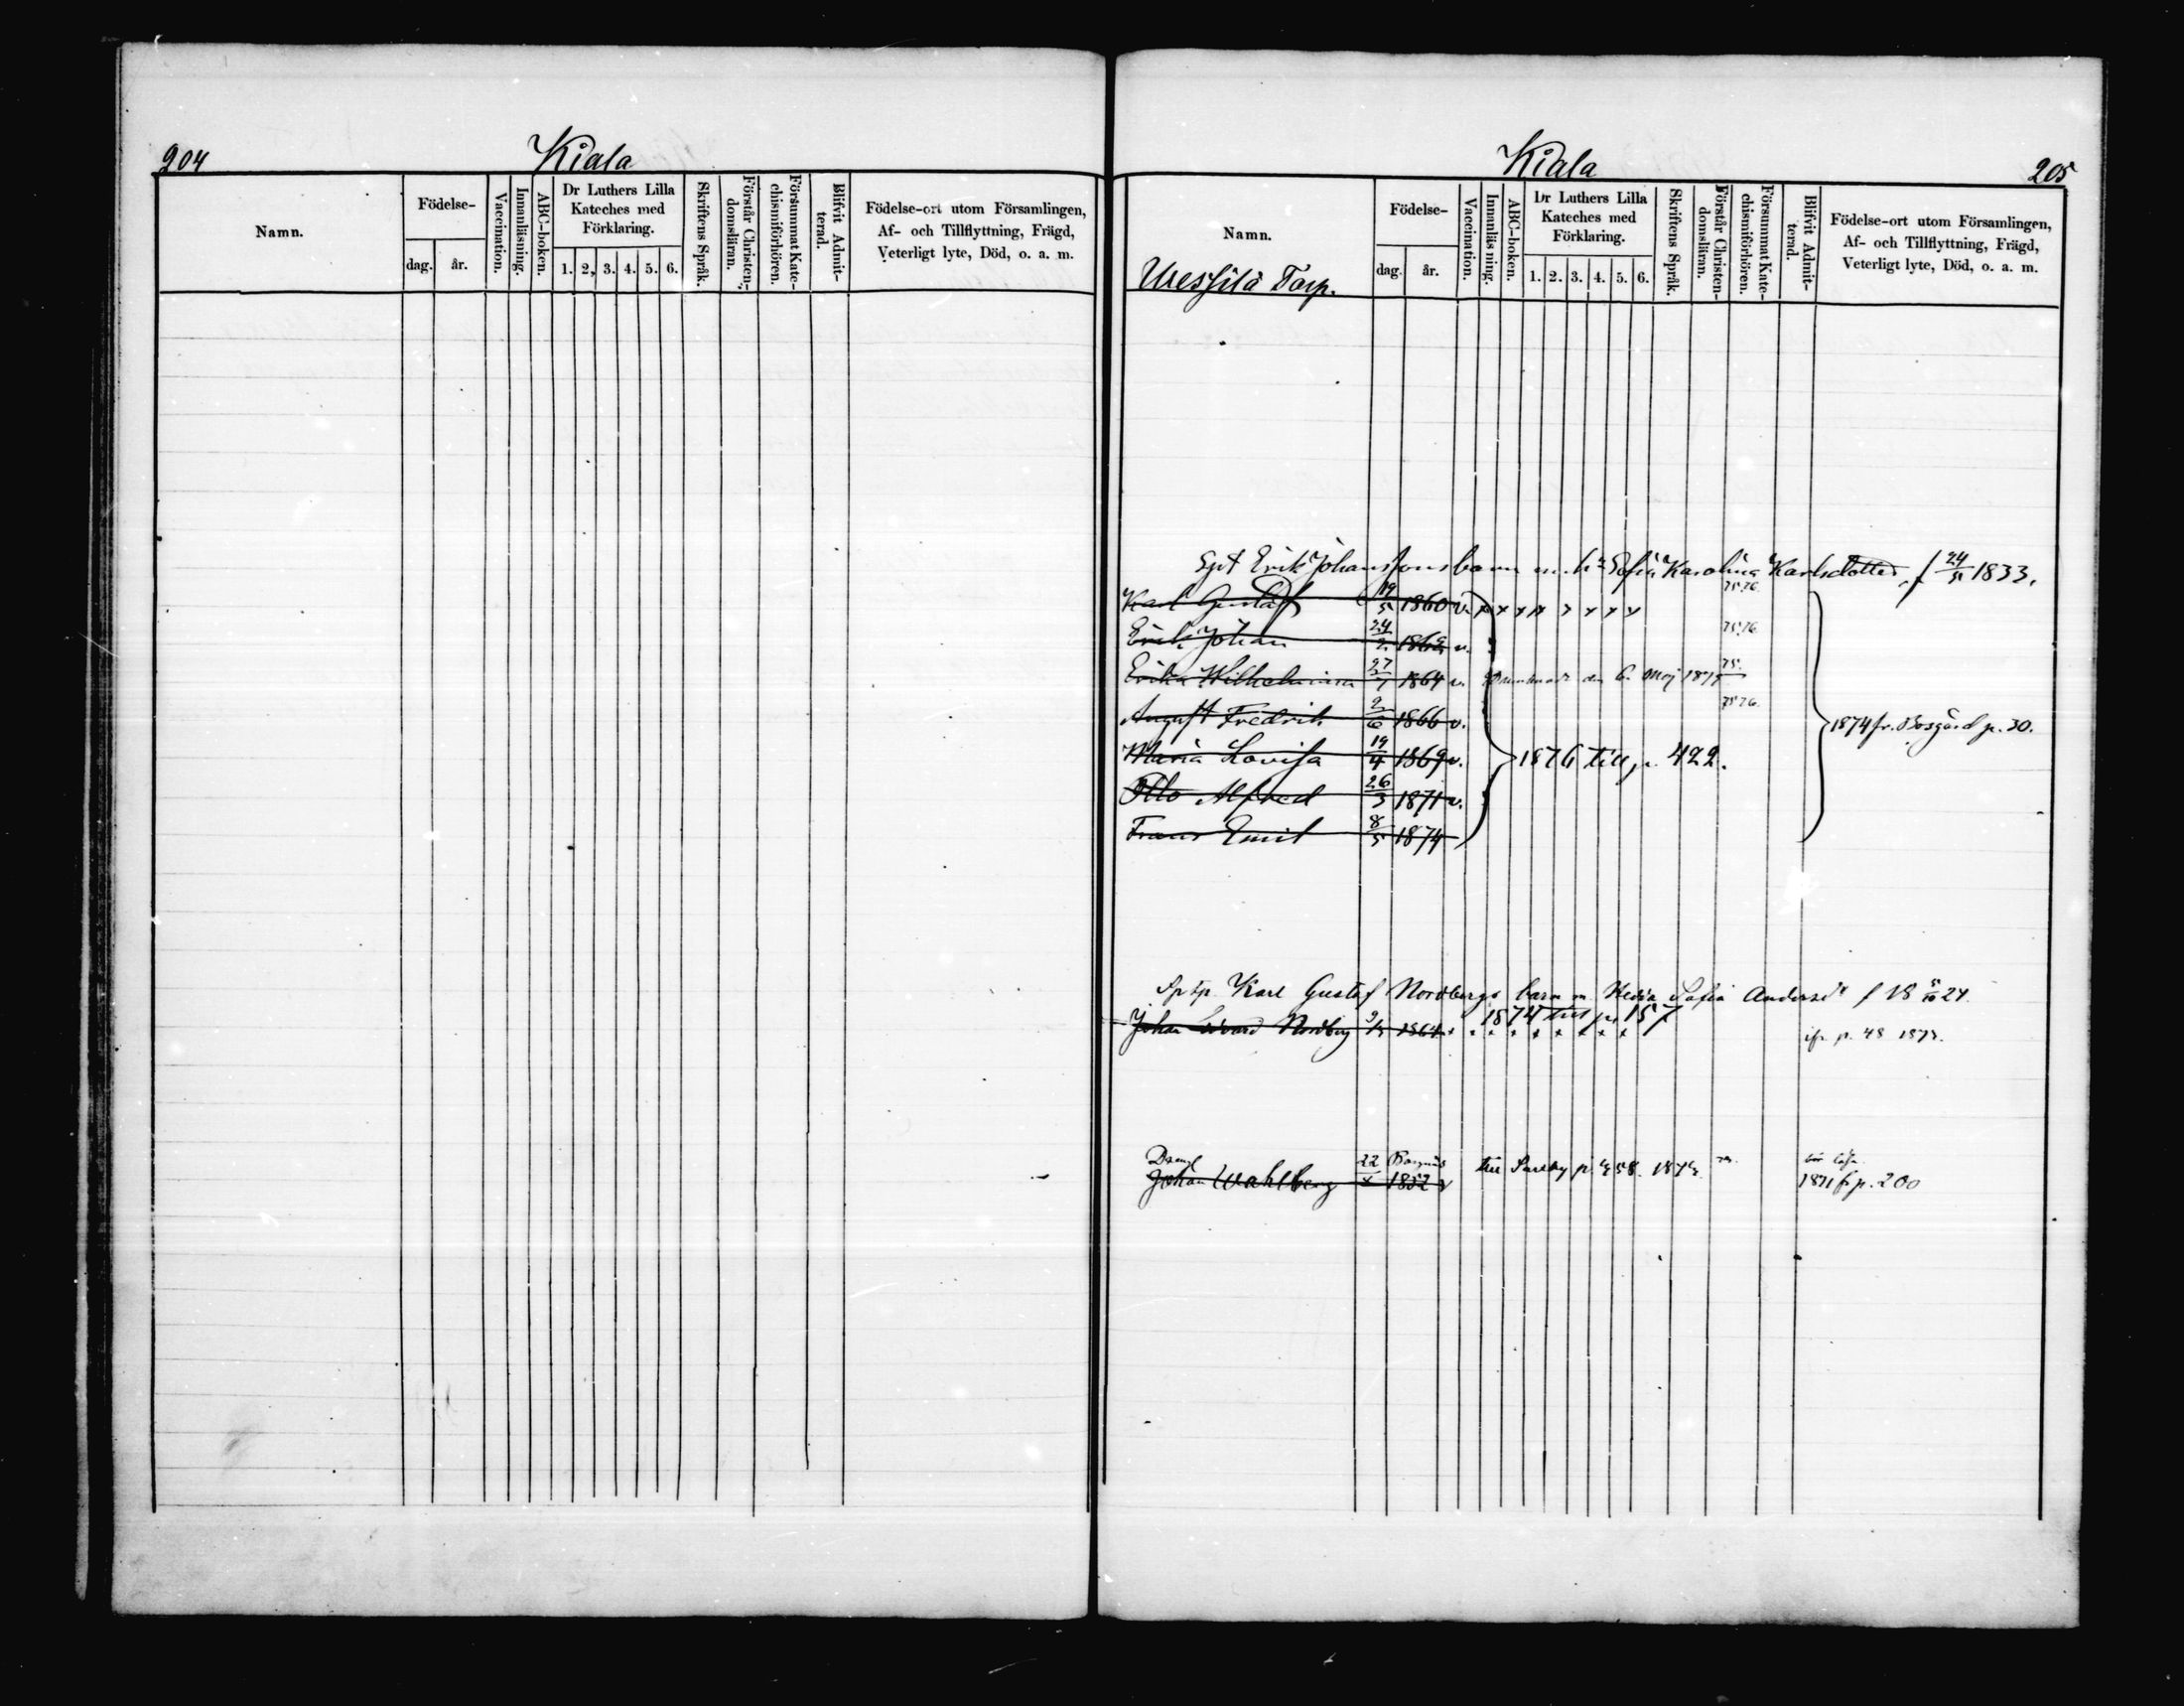 204
Kiala
Namn.
Födelse-
dag. år.
Vaccination.
Innanläsning.
ABC-boken.
Dr Luthers Lilla
Kateches med
Förklaring.
1. 2, 3. 4. 5. 6.
Skriftens Språk.
Förstår Christen-
domsläran.
Försummat Kate-
chismiförhören.
Blifvit Admit-
terad.
Födelse-ort utom Församlingen,
Af- och Tillflyttning, Frägd,
Veterligt lyte, Död, o. a. m.
Kiala
205
Namn.
Födelse-
dag. år.
Vaccination.
Innanläsning.
ABC-boken.
Dr Luthers Lilla
Kateches med
Förklaring.
1. 2. 3. 4. 5. 6.
Skriftens Språk.
Förstår Christen-
domsläran.
Försummat Kate-
chismiförhören.
Blifvit Admit-
terad.
Födelse-ort utom Församlingen,
Af- och Tillflyttning, Frägd,
Veterligt lyte, Död, o. a. m.
Torp.
Erik Johanssons barn m. h. Sofia Karolina Karlsdotter, f 24/5 1833.
Karl Gustaf 19/5 1860 v. x x x x x x x x 75.76.
Erik Johan 24/2 1862 v. 75.76.
Erika Wilhelmina 27/1 1864 v. den 6. Maj 1875 75.
August Fredrik 2/6 1866 v. 75.76. 1874 fr. Bosgård p. 30.
Maria Lovisa 19/4 1869 v. 1876 till p. 422.
Otto Alfred 26/3 1871 v.
Frans Emil 8/5 1874
Karl Gustaf Nordbergs barn m Hedda Sofia Andersdr f 18 5/10 24.
1874 till p. 157
Johan Edvard Nordberg 1864 x x x x x x x x p. 48 1873.
Johan Wahlberg 22 1852 v till p. 458. 187
1871 fr p. 200